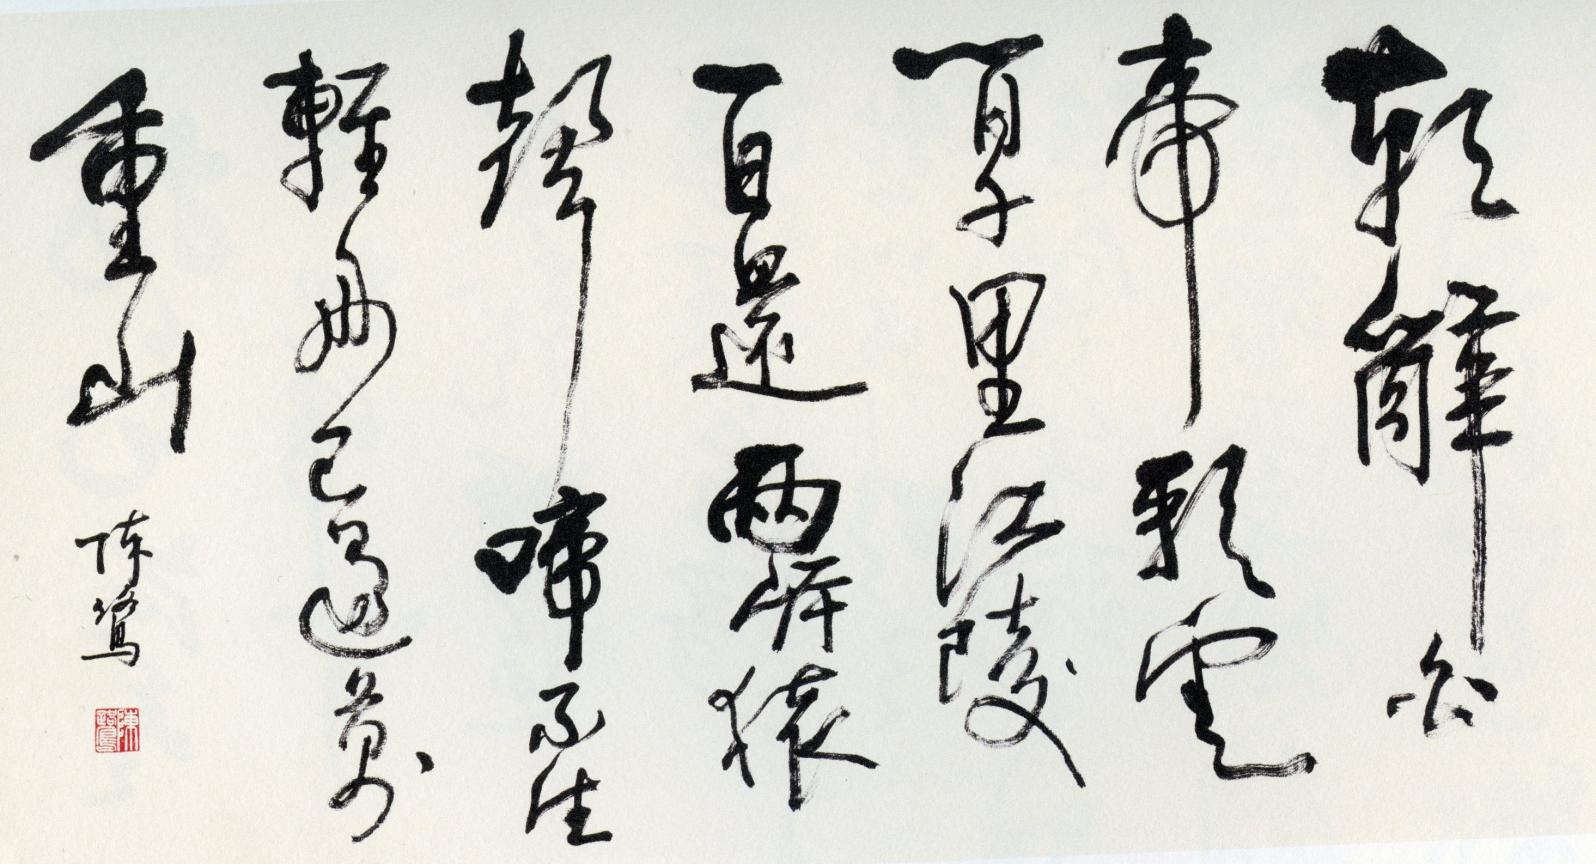 朝辭白
帝彩雲
間千里江陵
一日還兩岸猿
聲啼不住
輕舟已過萬
重山
陈鷺
陳鷺